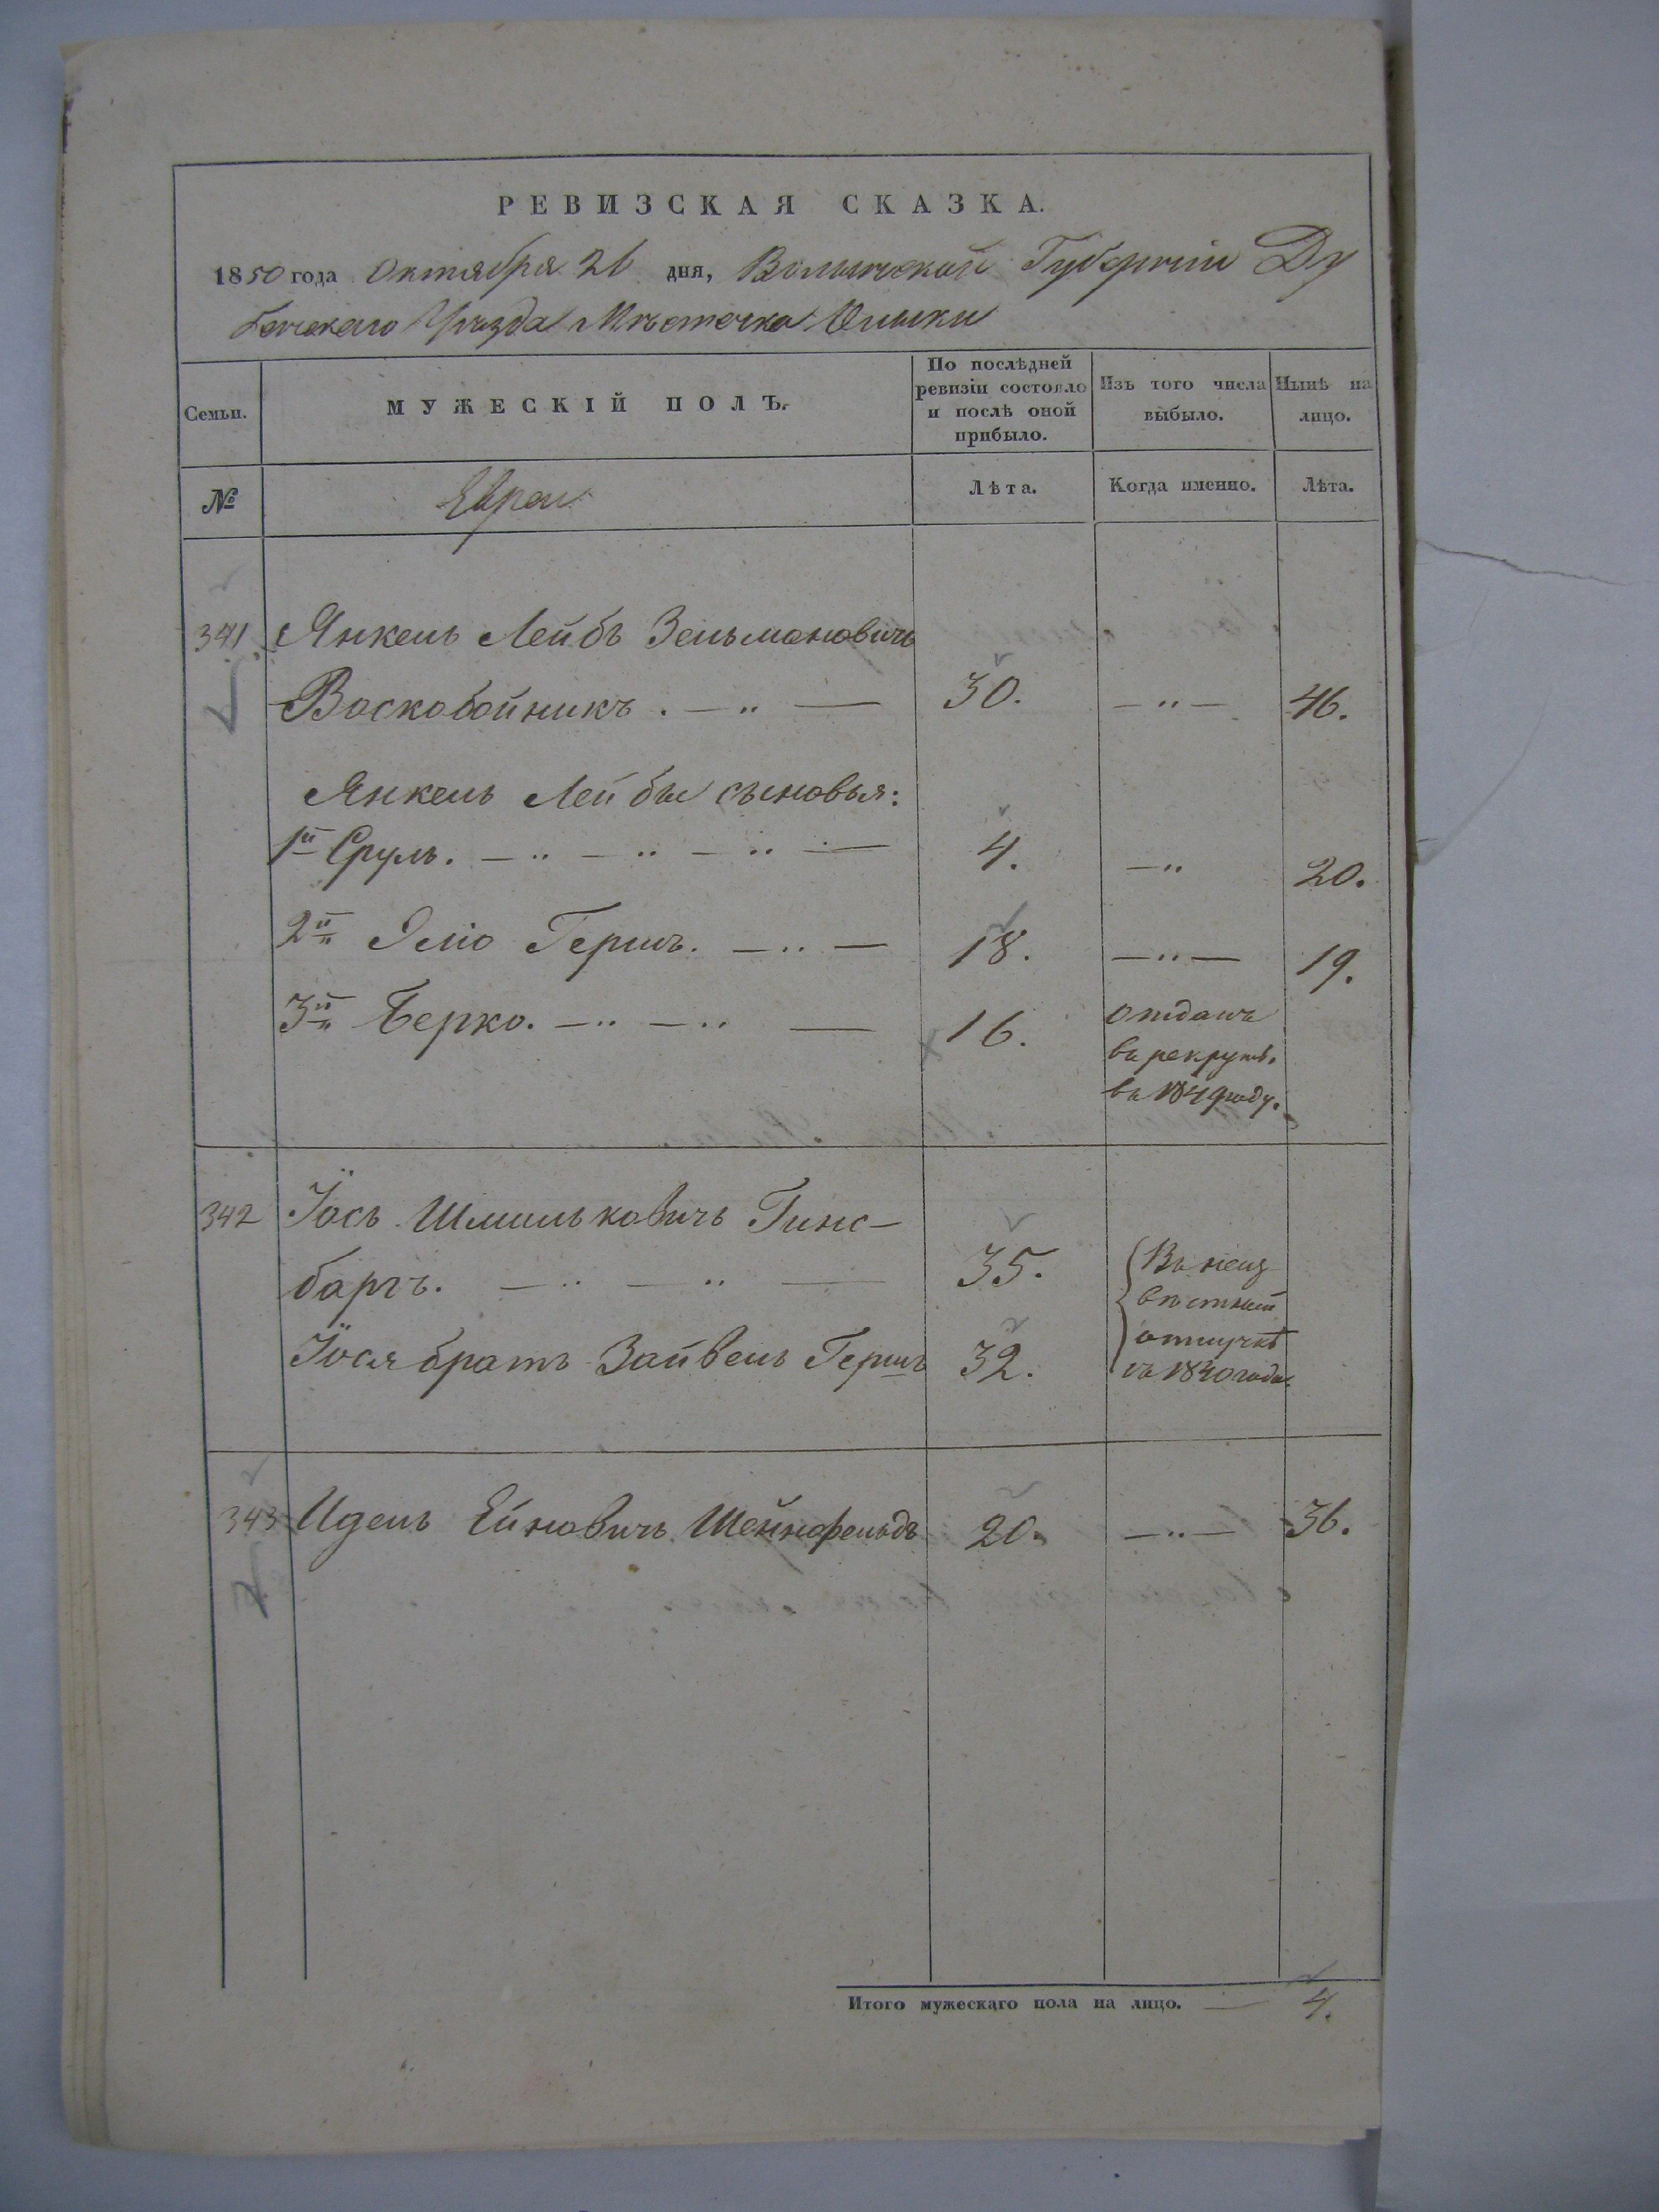 РЕВИЗСКАЯ СКАЗКА.
1850 года Октября 26 дня, Волынской Губернiи Ду
бенскаго Уѣзда Мѣстечка Олыки
Семьи.
МУЖЕСКІЙ ПОЛЪ.
По послѣдней
ревизіи состояло
и послѣ оной
прибыло.
Изъ того числа
выбыло.
Нынѣ на
лицо.
№
Евреи
Лѣта.
Когда именно.
Лѣта.
341 Янкель Лейбъ Зельмановичъ
Воскобойникъ. — „ — 30. — „ — 46.
Янкель Лейбы сыновья:
1й Сруль. — „ — „ — „ — 4. — „ 20.
2й Элiо Гершъ. — „ — 18. — „ — 19.
3й Берко. — „ — „ — 16. отданъ
въ рекруты.
въ 1849 году.
342 Іось Шмильковичъ Гинс-
баргъ. — „ — „ — 35.
Іося братъ Зайвель Гершъ 32.
Въ неиз
вѣстной
отлучкѣ
съ 1840 года.
343 Идель Ейновичъ Шейнфельдъ 20. — „ — 36.
Итого мужескаго пола на лицо. — 4.